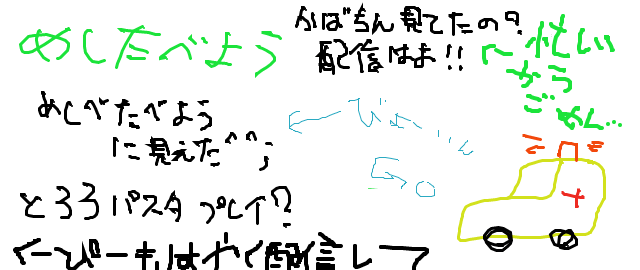 めしたべよう
かばちん見てたの?
配信はよ!!
←忙しい
から
ごめん…
めしべたべよう
に見えた^^;
←びょーいん
とろろパスタプレイ?
←びーもはやく配信して